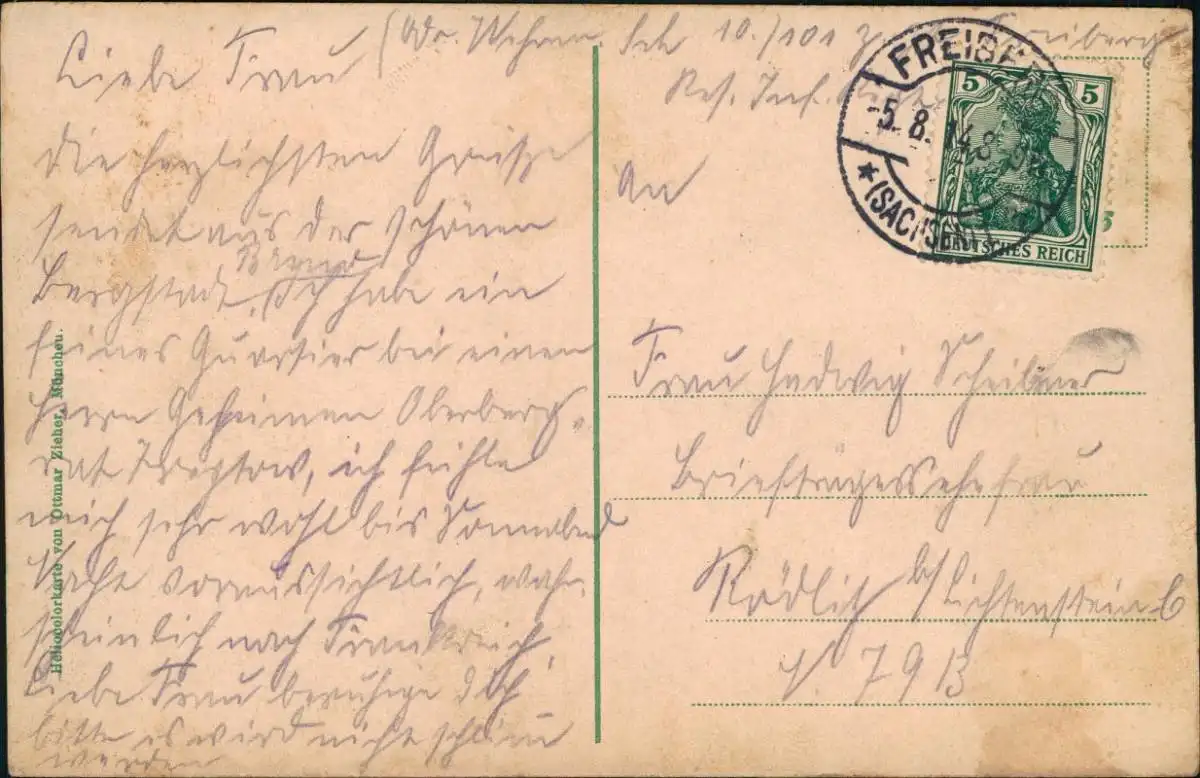 Liebe Frau
die herzlichsten Grüße
sendet aus der schönen
Bergstadt, Ich habe ein
feines Quartier bei einem
Herrn Geheimen Oberberg-
rat Treptow, ich fühle
mich sehr wohl bis Sonnabend
Nacht voraussichtlich, wahr-
scheinlich nach Frankreich,
Liebe Frau beruhige dich
bitte es wird nicht schlimm
werden
(Adr. Wehrm. 10./101 z. Freiberg
Res. Inf.
An
Frau Hedwig Scheibner
Briefträgersehefrau
Rödlitz b/Lichtenstein C
No 79 B
FREIBERG
-5.8.14.8
*(SACHSEN)
5 5
DEUTSCHES REICH
5
Heliocolorkarte von Ottmar Zieher, München.